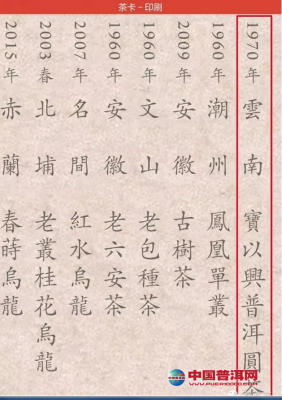 茶卡－印刷
1970年 雲南 寶以興普洱圓茶
1960年 潮州 鳳凰單叢
2009年 安徽 古樹茶
1960年 文山 老包種茶
1960年 安徽 老六安茶
2007年 名間 紅水烏龍
2003春 北埔 老叢桂花烏龍
2015年 赤蘭 春蒔烏龍
中国普洱网
WWW.PUERCN.COM